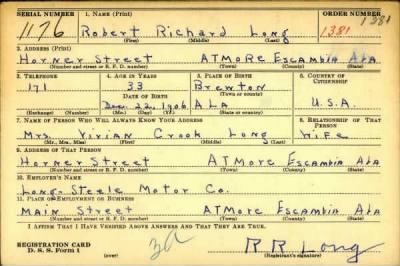 SERIAL NUMBER 1. NAME (Print) ORDER NUMBER
1176 Robert Richard Long 1381 1381
(First) (Middle) (Last)
2. ADDRESS (Print)
Horner Street ATMORE Escambia Ala
(Number and street or R. F. D. number) (Town) (County) (State)
3. TELEPHONE 4. AGE IN YEARS 5. PLACE OF BIRTH 6. COUNTRY OF CITIZENSHIP
171 33 Brewton
DATE OF BIRTH (Town or county)
Dec. 22, 1906 ALA U.S.A.
(Exchange) (Number) (Mo.) (Day) (Yr.) (State or country)
7. NAME OF PERSON WHO WILL ALWAYS KNOW YOUR ADDRESS 8. RELATIONSHIP OF THAT PERSON
Mrs. Vivian Crook Long Wife
(Mr., Mrs., Miss) (First) (Middle) (Last)
9. ADDRESS OF THAT PERSON
Horner Street ATMore Escambia Ala
(Number and street or R. F. D. number) (Town) (County) (State)
10. EMPLOYER'S NAME
Long-Steele Motor Co.
11. PLACE OF EMPLOYMENT OR BUSINESS
Main Street ATMore Escambia Ala
(Number and street or R. F. D. number) (Town) (County) (State)
I AFFIRM THAT I HAVE VERIFIED ABOVE ANSWERS AND THAT THEY ARE TRUE.
REGISTRATION CARD
D. S. S. Form 1 (over) 3a R R Long
(Registrant's signature)